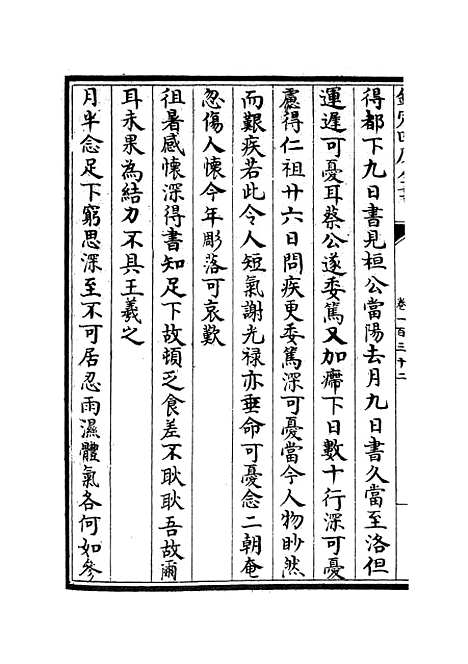 欽定四庫全書
卷一百三十二
得都下九日書見桓公當陽去月九日書久當至洛但
運遲可憂耳蔡公遂委篤又加㿃下日數十行深可憂
慮得仁祖廿六日問疾更委篤深可憂當今人物眇然
而艱疾若此令人短氣謝光禄亦垂命可憂念二朝奄
忽傷人懷今年彫落可哀歎
徂暑感懷深得書知足下故頓乏食差不耿耿吾故爾
耳未果為結力不具王羲之
月半念足下窮思深至不可居忍雨濕體氣各何如參